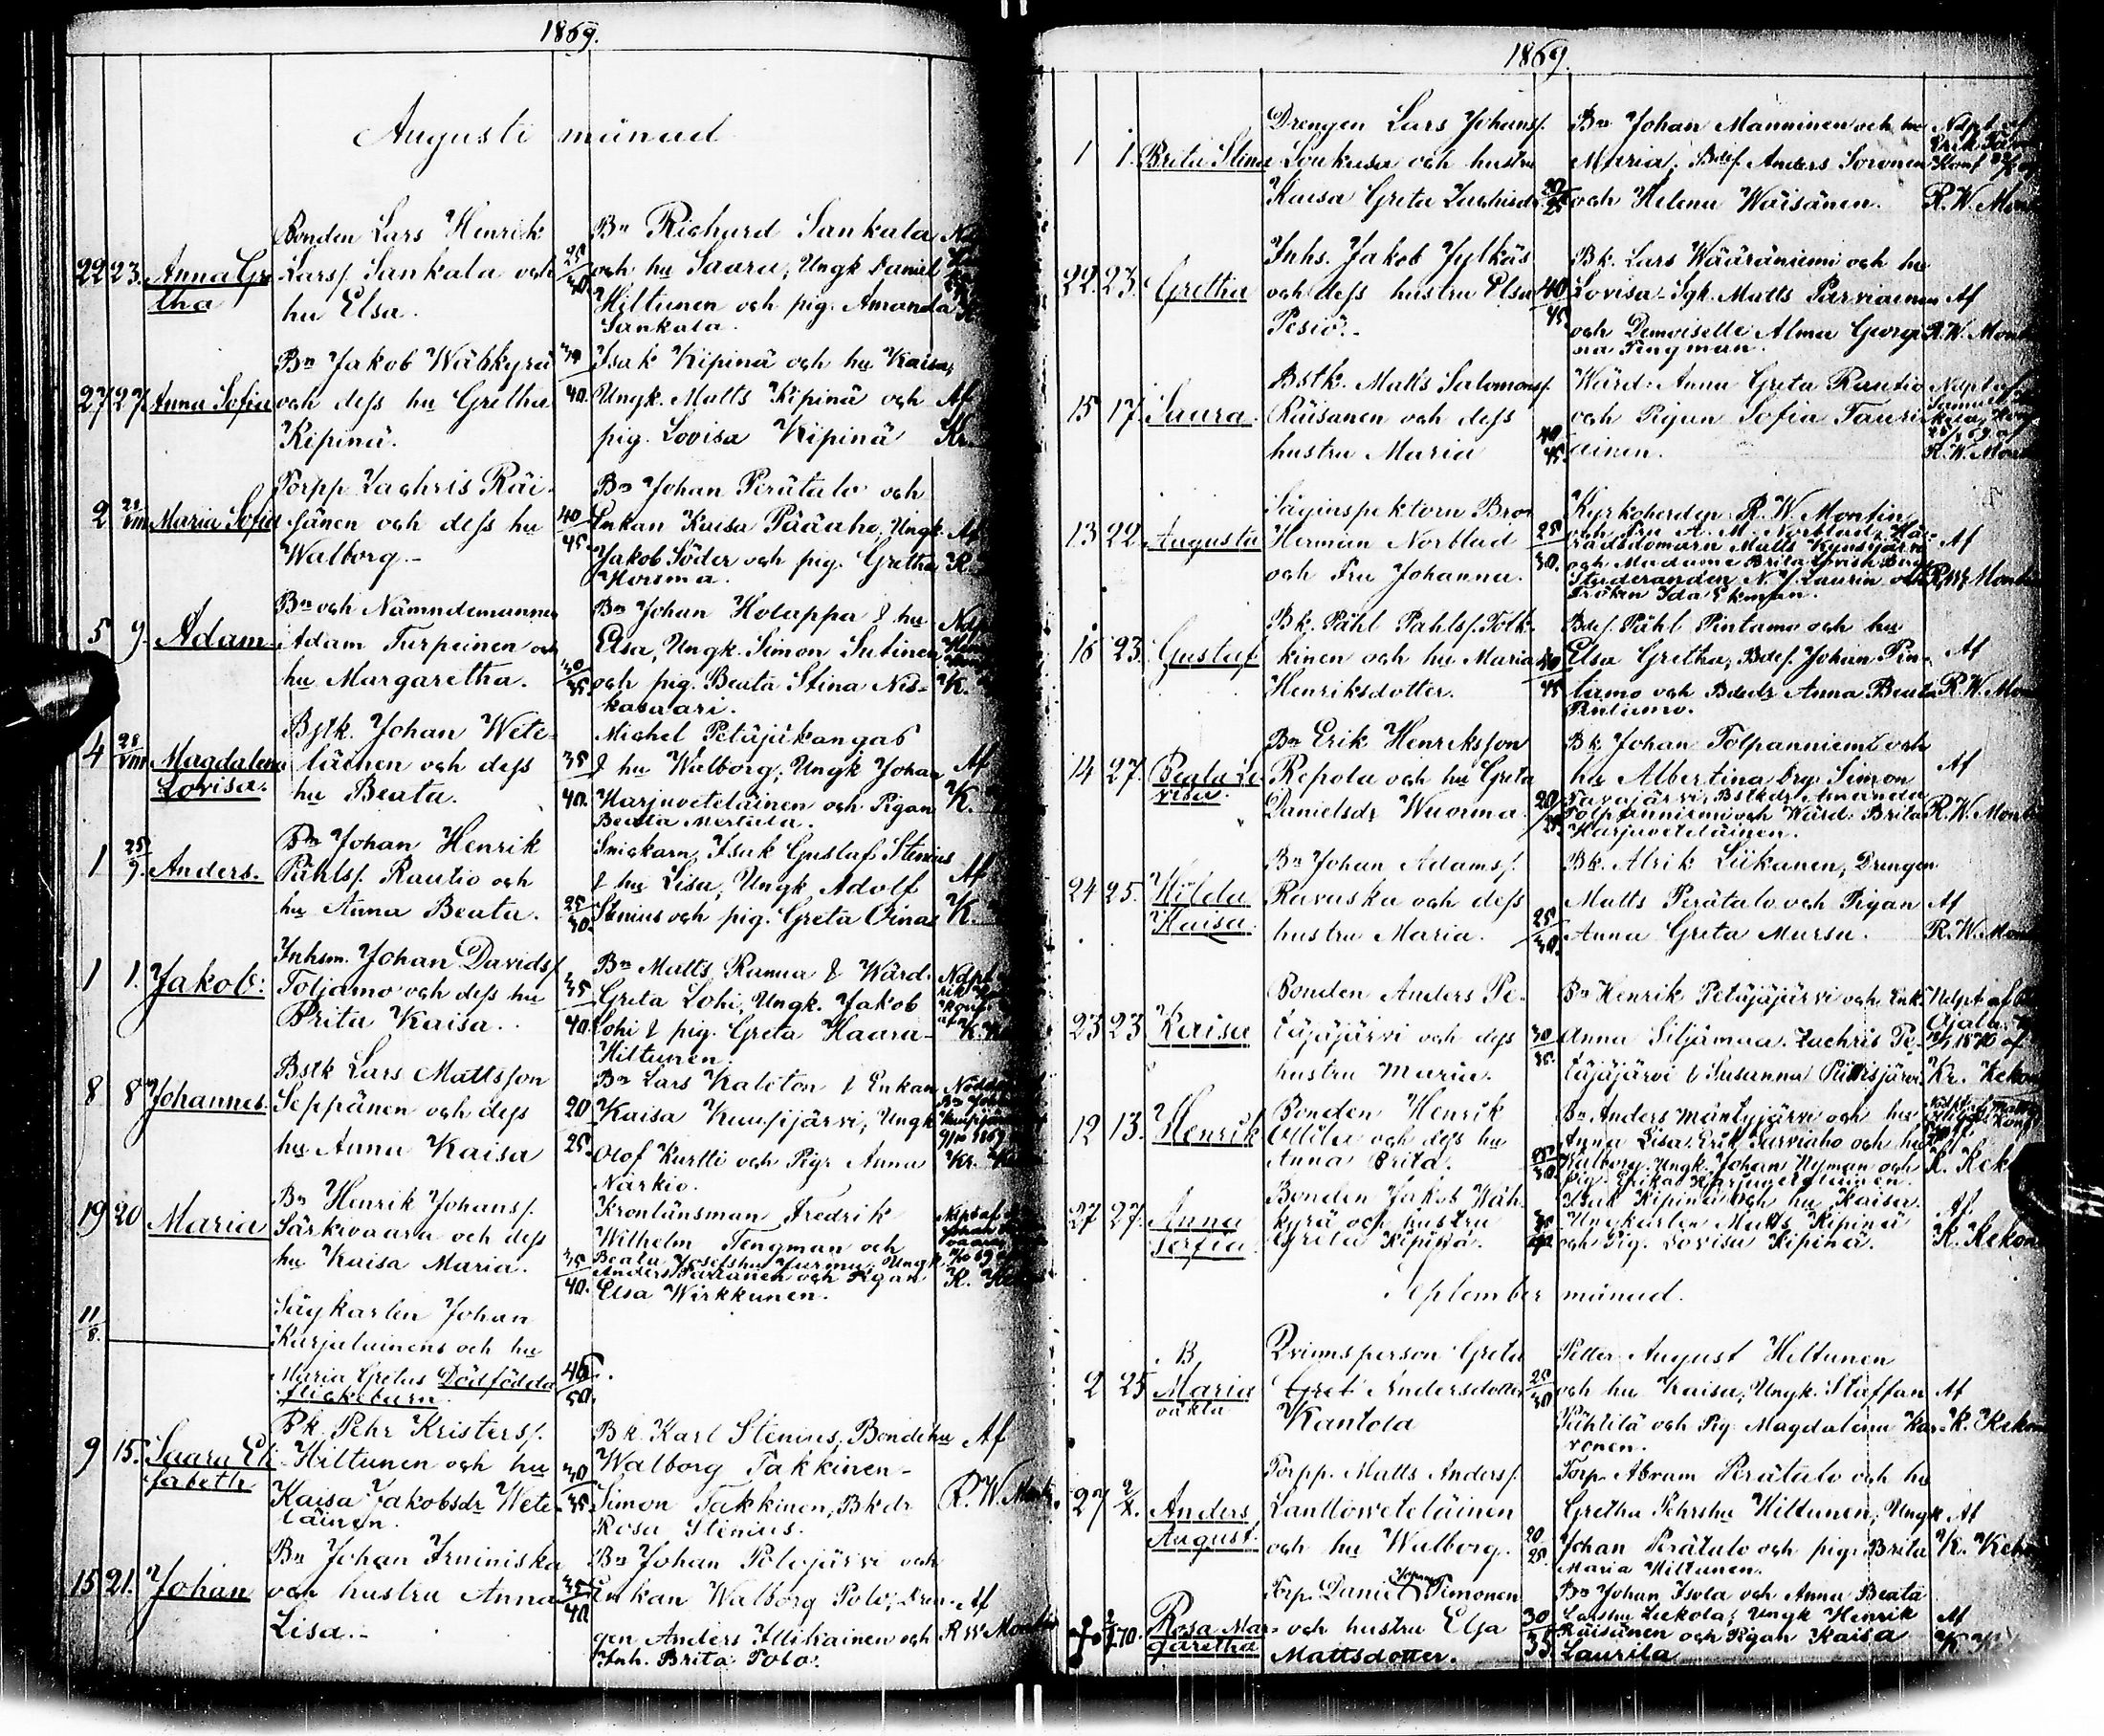 1869.
Augusti månad
22 23. Anna Gre
tha
Bonden Lars Henrik
Larsſ. Sankala och
hu Elsa.
25/30
Bn Richard Sankala
och hu Saara, Ungk Daniel
Hiltunen och pig. Amanda
Sankala.
27 27 Anna Sofia
Bn Jakob Wähkyrä
och deſs hu Gretha
Kipinä.
40.
Isak Kipinä och hu Kaisa,
Ungk. Matts Kipinä och
pig. Lovisa Kipinä
Af
2 Maria Sofia
Torpp Zachris Räi-
sänen och deſs hu
Walborg.-
40/45
Bn Johan Perätalo och
Enkan Kaisa Pääaho, Ungk.
Jakob Söder och pig. Gretha
Horsma.
Af
5 9. Adam.
Bn och Nämndemannen
Adam Turpeinen och
hu Margaretha.
30/35
Bn Johan Holappa & hu
Elsa, Ungk. Simon Sutinen
och pig. Beata Stina Nis-
kasaari.
4 28/VIII Magdalena
Lovisa.
Bstk. Johan Wete-
läinen och deſs
hu Beata.
35/40.
Michel Petäjäkangas
& hu Walborg, Ungk Johan
Harjuveteläinen och Pigan
Beata Mertala.
Af
K.
1 25/9. Anders.
Bn Johan Henrik
Påhlsſ. Rautio och
hu Anna Beata.
25/30.
Snickarn Isak Gustaf Stenius
& hu Lisa, Ungk Adolf
Stenius och pig. Greta Oinas
Af
K.
1 1. Jakob.
Inhsm. Johan Davidsſ.
Toljamo och deſs hu
Brita Kaisa.
35/40.
Bn Matts Ranua & Wärd.
Greta Lohi, Ungk. Jakob
Lohi & pig. Greta Haara-
Hiltunen.
Ndpt
8 8 Johannes.
Bstk Lars Mattsſon
Seppänen och deſs
hu Anna Kaisa
20/25.
Bn Lars Kaleton & Enkan
Kaisa Kuusijärvi, Ungk
Olof Kurtti och Pigr Anna
Narkio.
Kr.
19 20 Maria
Bn Henrik Johansſ.
Särkivaara och deſs
hu Kaisa Maria.
35/40.
Kronlänsman Fredrik
Wilhelm Tengman och
Beata Josefshu Jurmu, Ungk
Anders Parranen och Pigan
Elsa Wirkkunen.
K.
11/8.
Sågkarlen Johan
Karjalainens och hu
Maria Gretas Dödfödda
flickebarn.
45/50.
9 15. Saara Eli-
sabeth
Bk. Pehr Kristersſ.
Hiltunen och hu
Kaisa Jakobsdr Wete-
läinen.
30/35
Bk. Karl Stenius, Bondehu
Walborg Takkinen-
Simon Takkinen, Bkdr
Rosa Stenius.
Af
R. W. Montin
15 21. Johan
Bn Johan Irniniska
och hustru Anna
Lisa.-
35/40
Bn Johan Polojärvi och
Enkan Walborg Polo; Dren-
gen Anders Illikainen och
Inh. Brita Polo.
Af
R W Montin
1869.
1 1. Brita Stina
Drengen Lars Johansſ.
Loukusa och hustru
Kaisa Greta Zachrisdr
20/25
Bn Johan Manninen och hu
Maria, Bdeſ. Anders Soronen
och Helena Wäisänen.
Ndpt af
R. W. Mont
22. 23. Gretha
Inhs. Jakob Jylkäs
och deſs hustru Elsa
Pesiö.-
40/45
Bk. Lars Wääräniemi och hu
Lovisa. Sgk. Matts Parviainen
och Demoiselle Alma Georgi-
na Tengman.
Af
R. W. Mont
15 17. Saara.
Bstk. Matts Salomonsſ.
Räisänen och deſs
hustru Maria
40/45.
Wärd. Anna Greta Rautio
och Pigan Sofia Tauri-
ainen.
Ndpt af
R. W. Mont
13 22. Augusta
Såginspektorn Bror
Herman Norblad
och Fru Johanna.
25/30.
Kyrkoherden R. W. Montin
och Fru A. M. Norblad, Hä-
radsdomarn Matts Kynsijärvi
och Madame Brita Lovisa Berg
Studeranden N. J. Laurin och
Fröken Ida Ekman.
Af
R. W. Montin
16 23. Gustaf
Bk. Påhl Påhlsſ. Tolk-
kinen och hu Maria
Henriksdotter.
40/45
Bdeſ. Påhl Pintamo och hu
Elsa Gretha; Bdeſ. Johan Pin-
tamo och Bdedr Anna Beata
Pintamo.
Af
R. W. Mon
14 27. Beata Lo-
visa.
Bn Erik Henriksſon
Repola och hu Greta
Danielsdr Wuorma
20/25.
Bk Johan Tolpanniemi och
hu Albertina Drg. Simon
Tavajärvi, Bstkdr Amanda
Tolpanniemi och Wärd. Brita
Harjuveteläinen.
Af
R. W. Mont
24 25. Hilda
Kaisa.
Bn Johan Adamsſ.
Ravaska och deſs
hustru Maria.
25/30.
Bk. Alrik Liikanen, Drengen
Matts Perätalo och Pigan
Anna Greta Mursu.
Af
R. W. Mont
23 23 Kaisa
Bonden Anders Pe-
täjäjärvi och deſs
hustru Maria.
30/35.
Bn Henrik Petäjäjärvi och Enk.
Anna Siljämaa. Zachris Pe-
täjäjärvi & Susanna Puhosjärvi
Ndpt af
Ojala
1870 af
Kr. Kekon
12 13. Henrik
Bonden Henrik
Ollila och deſs hu
Anna Brita.
25/30
Bn Anders Mäntyjärvi och hu
Anna Lisa. Erik Parviaho och hu
Walborg. Ungk. Johan Nyman och
pig. Erika Harjuveteläinen.
K. Kek
27 27. Anna
Sofia.
Bonden Jakob Wäh-
kyrä och hustru
Greta Kipinä.
35/40
Isak Kipinä och hu Kaisa.
Ungkarlen Matts Kipinä
och Pig. Lovisa Kipinä.
Af
K. Kekon
September månad.
2 25 B,
Maria
oäkta
Qvinnsperson Greta
Andersdotter
Kantola
25/30
Petter August Hiltunen
och hu Kaisa; Ungk. Staffan
Pähtilä och Pig. Magdalena Kar-
vonen.
Af
K. Kekon
27 2/X. Anders
August.
Torpp. Matts Andersſ.
Lantioveteläinen
och hu Walborg.
20/25
Torp. Abram Perätalo och hu
Gretha Pehrshu Hiltunen, Ungk
Johan Perätalo och pig. Brita
Maria Hiltunen.
Af
K. Keko
70. Rosa Mar-
garetha
Torp. Daniel Johans. Timonen
och hustru Elsa
Mattsdotter.
30/35
Bn Johan Isola och Anna Beata
Larshu Liekola; Ungk Henrik
Räisänen och Pigan Kaisa
Laurila
Af